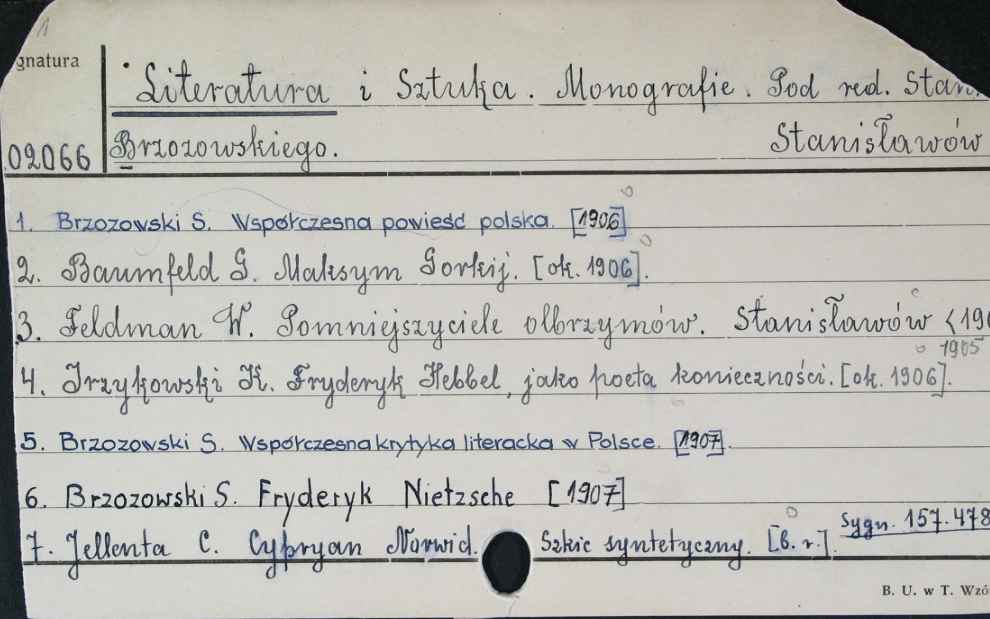 1
gnatura
Literatura i Sztuka. Monografie. Pod red. Stan.
02066 Brzozowskiego. Stanisławów
1. Brzozowski S. Współczesna powieść polska. [1906]
2. Baumfeld G. Maksym Gorkij. [ok. 1906].
3. Feldman W. Pomniejszyciele olbrzymów. Stanisławów <190
1905
4. Irzykowski K. Fryderyk Hebbel, jako poeta konieczności. [ok. 1906].
5. Brzozowski S. Współczesna krytyka literacka w Polsce. [1907].
6. Brzozowski S. Fryderyk Nietzsche [1907]
7. Jellenta C. Cypryan Norwid. Szkic syntetyczny. [b. r.]. Sygn. 157.478
B. U. w T. Wzó